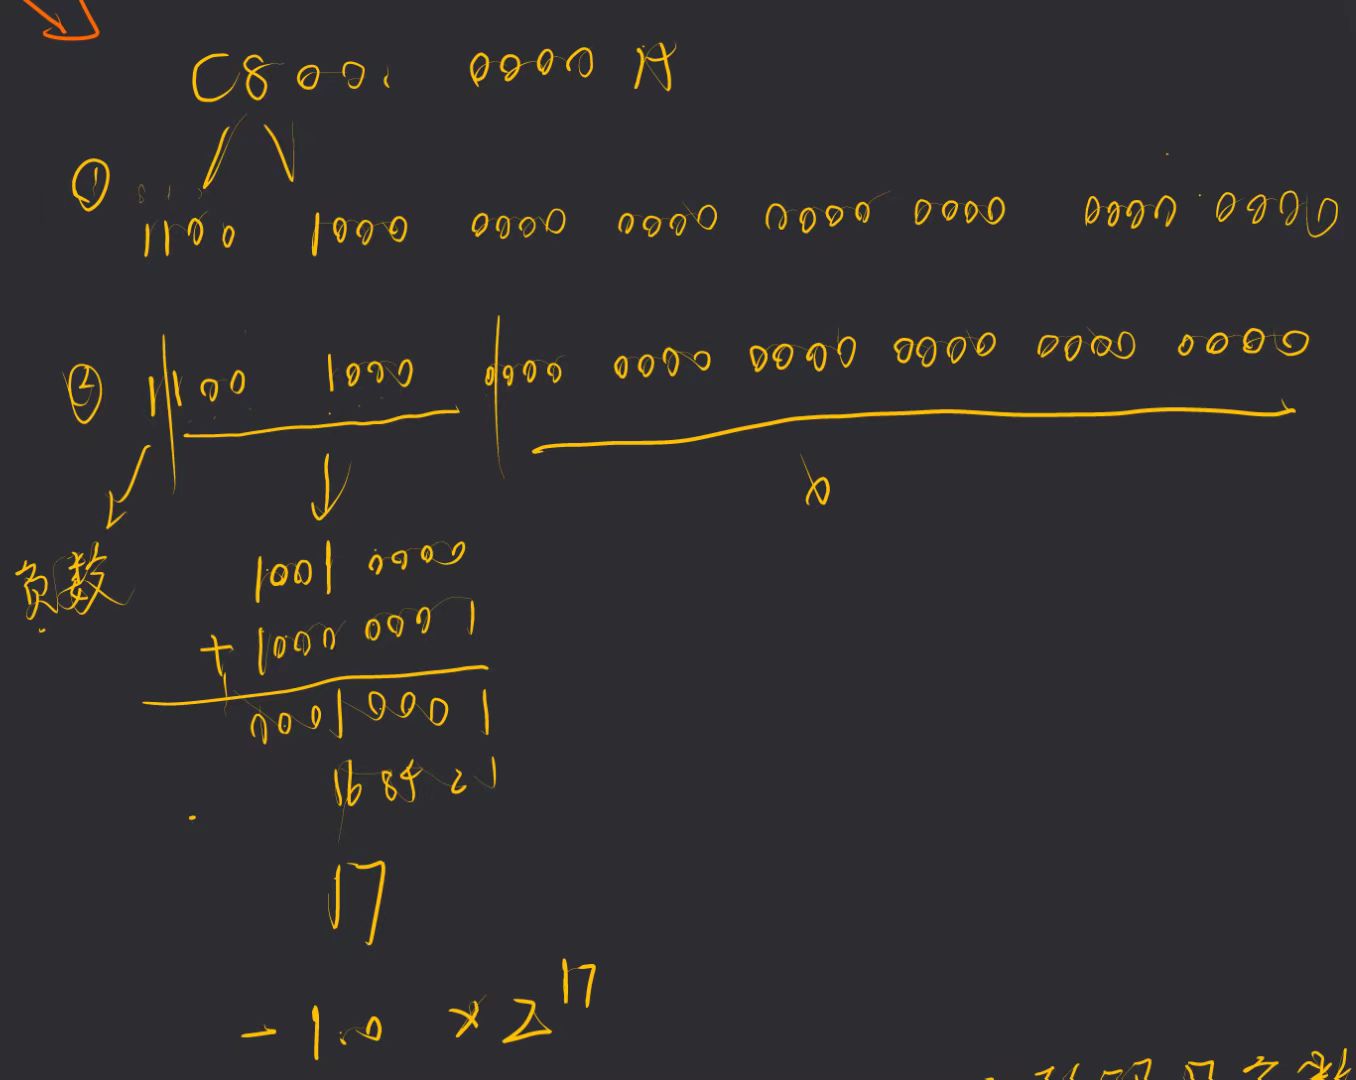 C800 0000 H
① 1100 1000 0000 0000 0000 0000 0000 0000
② 1 100 1000 0000 0000 0000 0000 0000 0000
0
负数
1001 0000
+ 1000 0001
1 0001 0001
16 8 4 2 1
17
-1.0 × 2^17